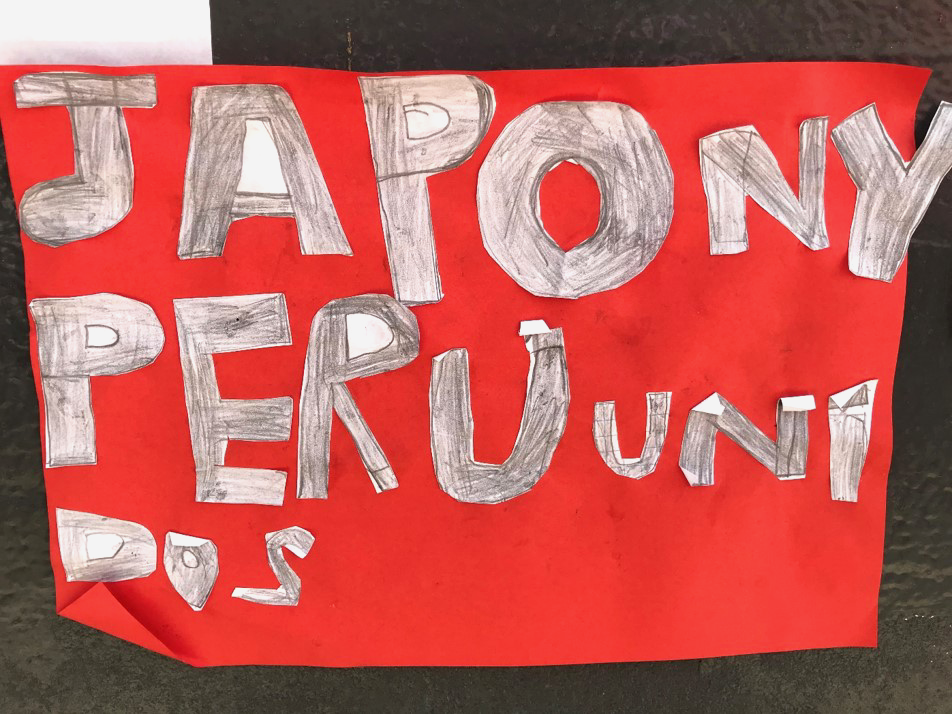 JAPON Y
PERU UNI
DOS